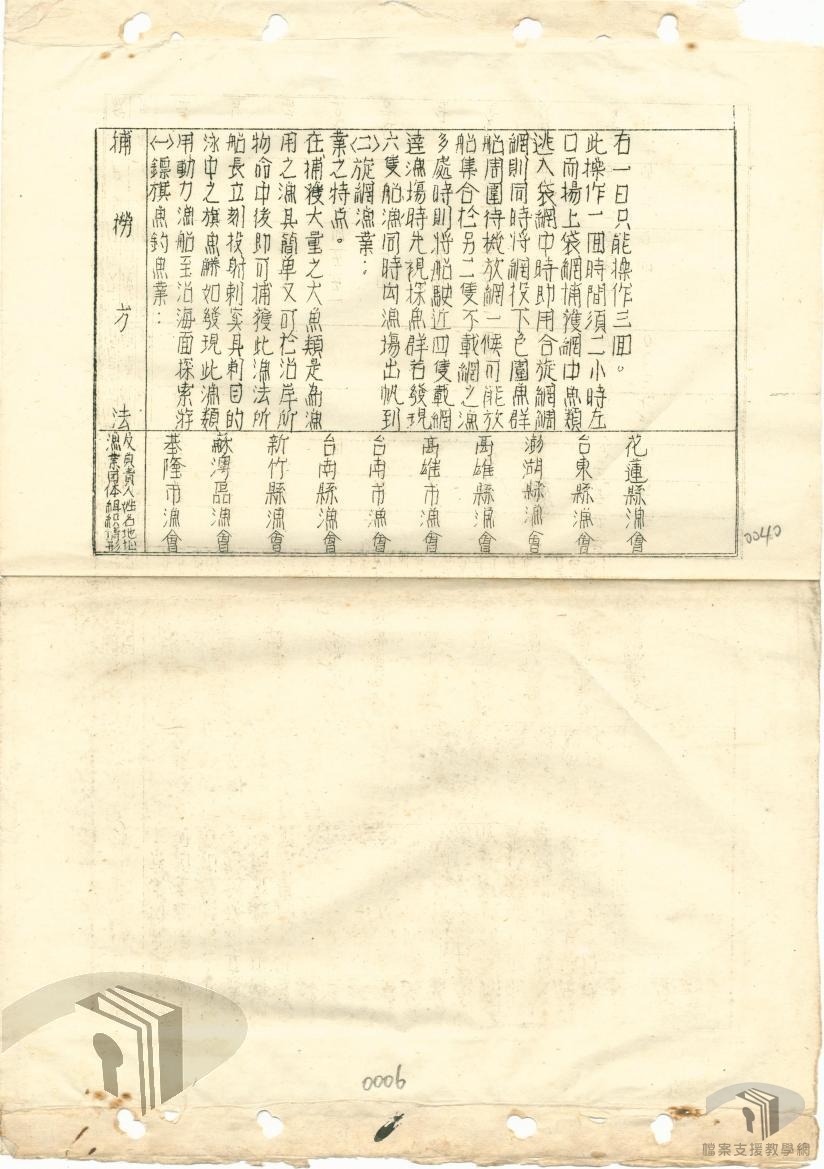 捕撈方法
(一)鏢旗魚釣魚業：
用動力漁船至沿海面探索游
泳中之旗魚鱗如發現此漁類
船長立刻投射刺突具刺目的
物命中後即可捕獲此漁法所
用之漁具簡单又可於沿岸所
在捕獲大量之大魚類是為漁
業之特点。
(二)旋網漁業：
六隻船漁同時向漁場出帆到
達漁場時先視探魚群若發現
多處時則將船駛近四隻載網
船集合於另二隻不載網之漁
船周圍待機放網一候可能放
網則同時將網投下包圍魚群
逃入袋網中時助用合旋網網
口而揚上袋網捕獲網中魚類
此操作一回時間須二小時左
右一日只能操作三回。
漁業团体組織情形
及負責人姓名地址
基隆市漁會
蘇澳區漁會
新竹縣漁會
台南縣漁會
台南市漁會
高雄市漁會
高雄縣漁會
澎湖縣漁會
台東縣漁會
花蓮縣漁會
0040
0006
檔案支援教學網